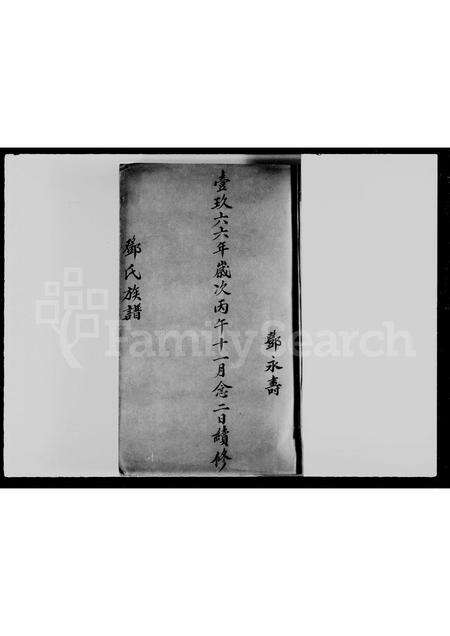 鄧永壽
壹玖六六年歲次丙午十一月念二日續修
鄧氏族譜
FamilySearch